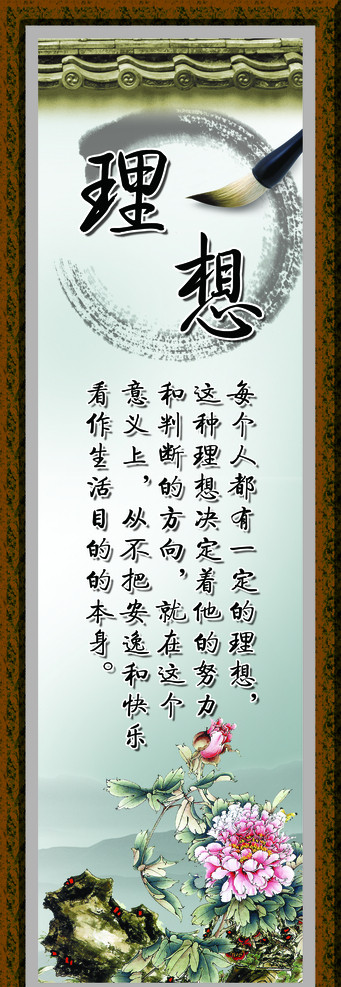 理想
每个人都有一定的理想，
这种理想决定着他的努力
和判断的方向，就在这个
意义上，从不把安逸和快乐
看作生活目的的本身。